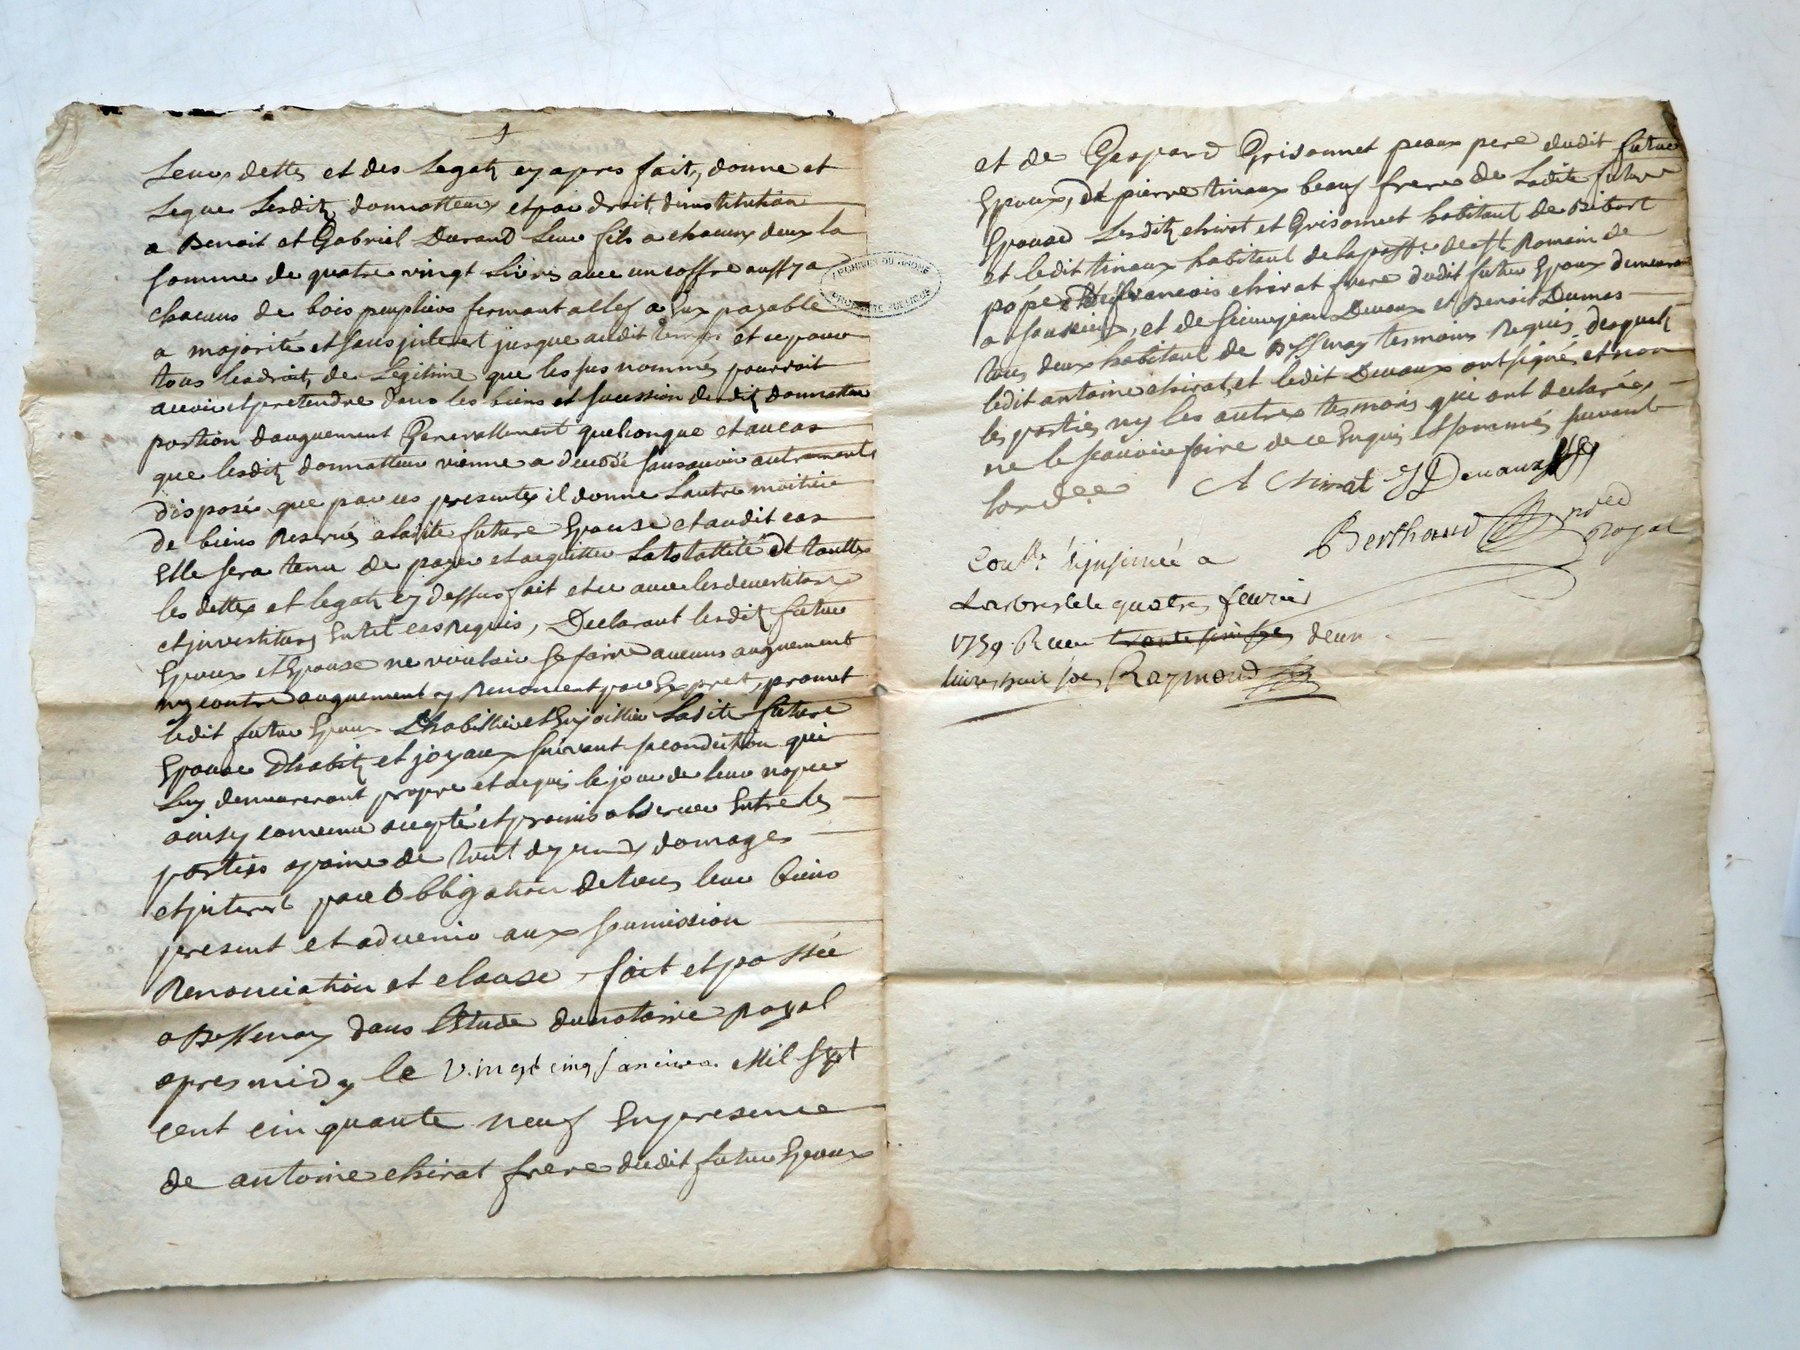 Leurs dettes et des Legatz cy apres fait, donne et
Legue Lesditz donnatteurs et par droit dinstitution
a Benoit et Gabriel Durand Leur fils a chacun deux la
somme de quatre vingt Livres avec un coffre aussy a
chacuns de bois peupliers fermant a clef a Eux payable
a majorité et sans jnterest jusque audit temps et ce pour
tous les droits de Legitime que les sus nommés pourroit
avoir et pretendre dans les biens et sucession desdit donnatteur
portion daugument Generallement quelconque et au cas
que lesditz donnatteur vienne a decedé sans avoir autrements
disposés que par ces presentes il donne Lautre moitiée
de biens Reservés a Ladite future Epouse et audit cas
Elle sera tenu de payer et acquitter La totallité de touttes
les dettes et legatz cy dessus fait et ce avec les devestiture
et jnvestitures En tel cas Requis, Declarant lesditz futur
Epoux et Epouse ne vouloir se faire aucuns augument
ny contre augument y Renoncent par Exprest, promet
ledit futur Epoux Dhabiller et Enjoiller Ladite future
Epouse Dhabitz et joyaux suivant sa condition qui
Luy demeureront propre et acquis le jour de leur nopce
ainsy convenu accepté et promis observer Entre les
parties a paine de tout depends, domages
et jnterest par Obbligation de tous leur biens
present et advenir aux soumission
Renonciation et clause, fait et passée
a Bessenay dans LEtude du notaire royal
apres midy le vingt cinq janvier Mil Sept
cent cinquante neuf En presence
de antoine chirat frere dudit futur Epoux
ARCHIVES DU RHONE
et de Gaspard Grisonnet peaux pere dudit futur
Epoux, de pierre tinaux beaux frere de Ladite future
Epouse Lesditz chirat et Grisonnet habitant de Bibost
et ledit tinaux habitant de la paroisse de St Romain de
popé de francois chirat frere dudit futur Epoux demeurant
a Savoisieux, et de Sieur jean Devaux et Benoit Dumas
tous deux habitant de Bessenay tesmoins Requis, desquelz
ledit antoine chirat, et ledit Devaux ont signé, et non
les parties ny les autres tesmoins qui ont declarées
ne le sçavoir faire de ce Enquis et sommés suivant
lord.ce A Chirat J Devaux
Berthaud no.re
royal
Coullé & jnsinué a
Larbresle le quatre fevrier
1759 Receu trante six sols deux
livres huit sols Raymond